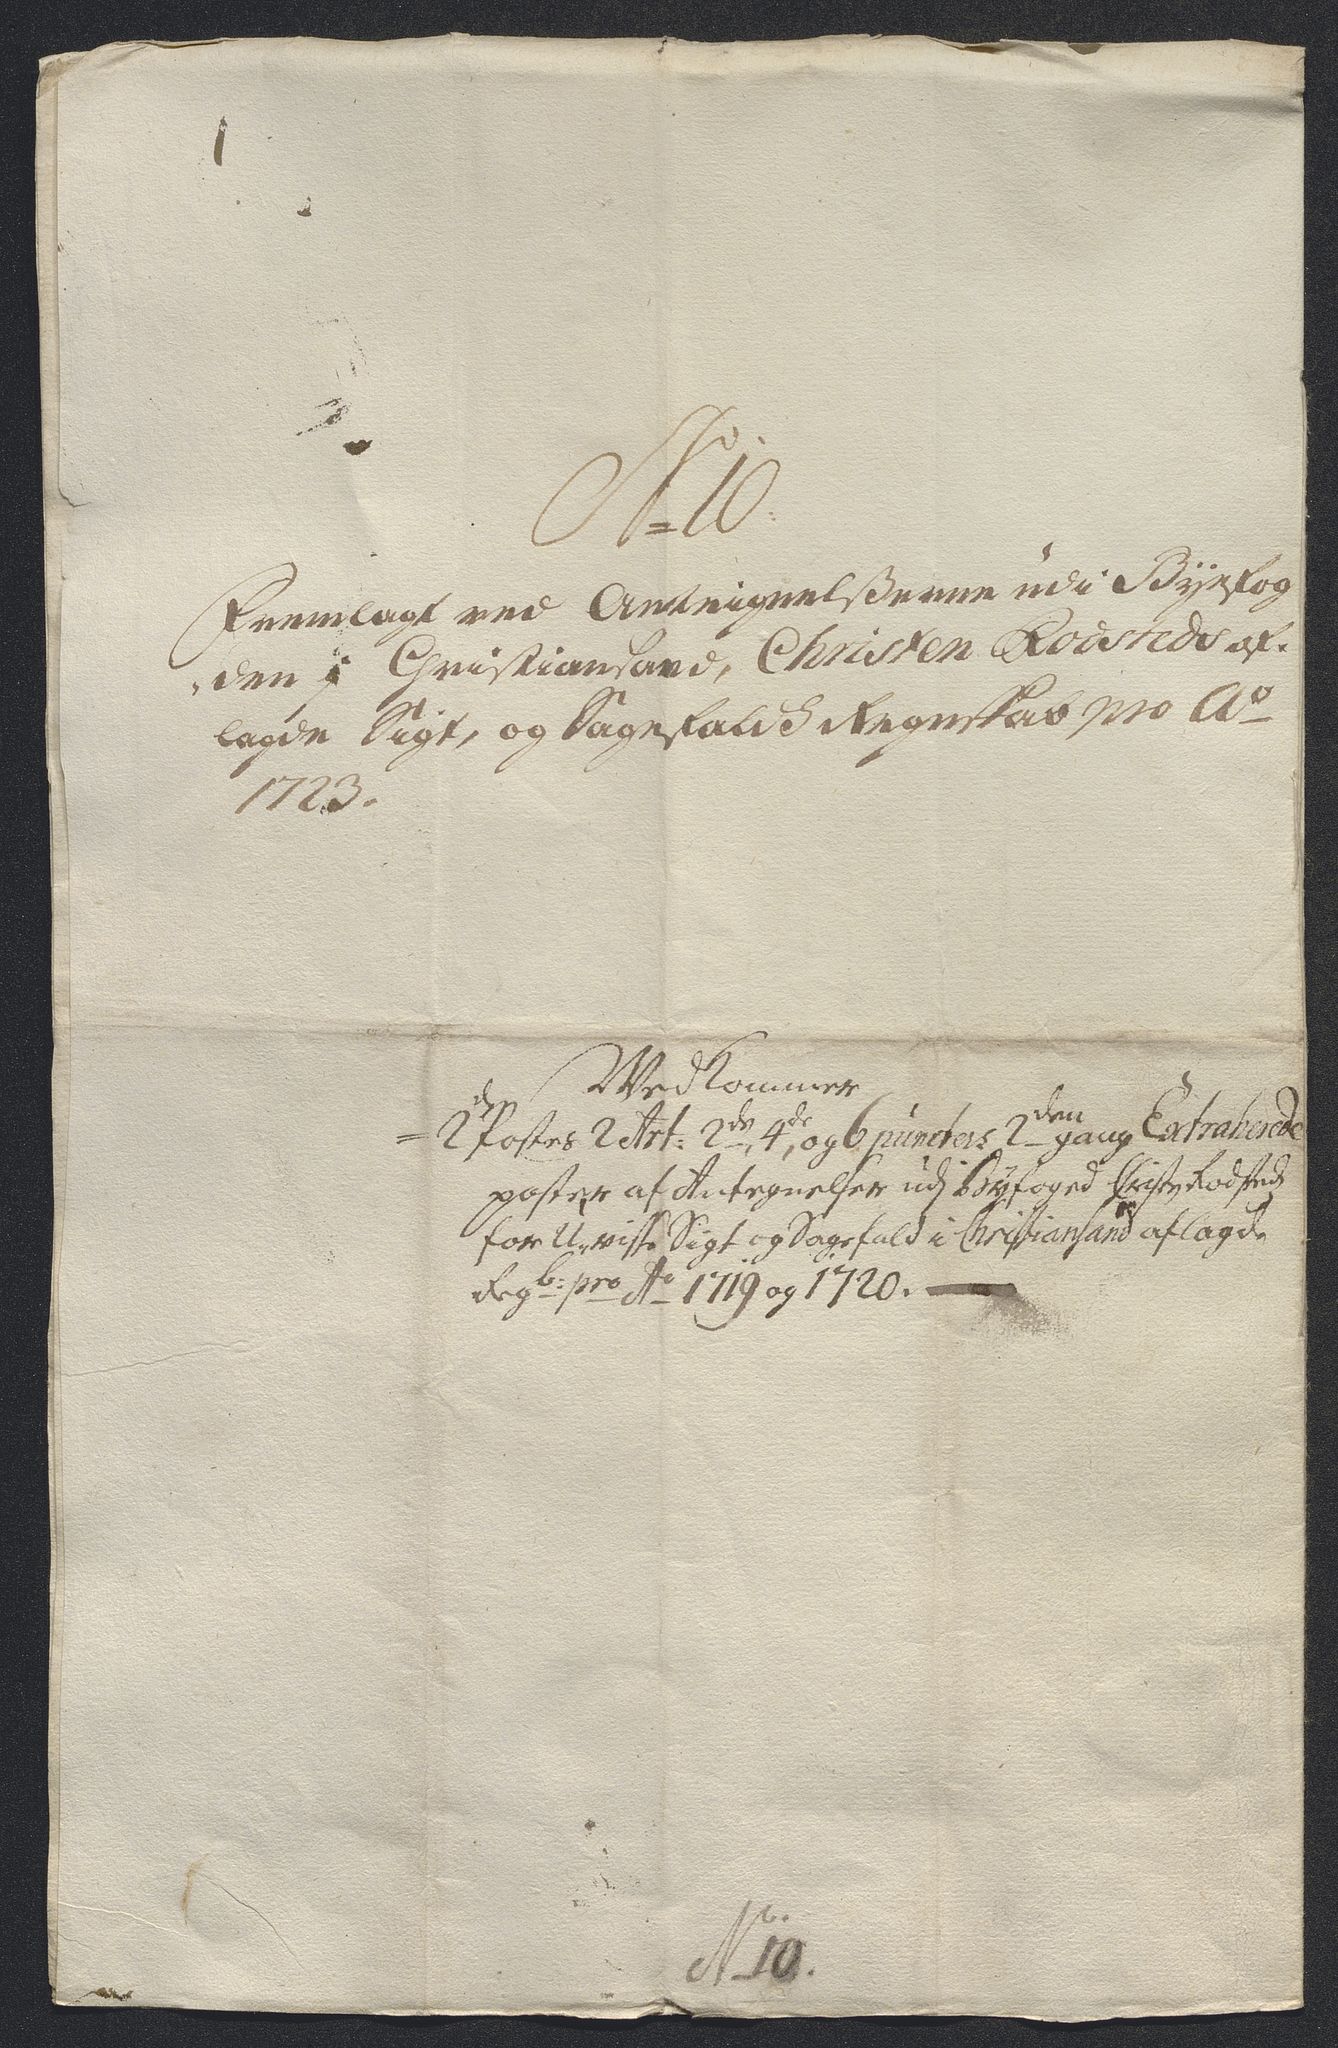 No 10.
Fremlagt ved Anteignelßerne udi Byefog
den i Christiansand, Christen Rodsteds af-
lagde Sigt, og Sagefalds Regnskab pro Ao
1723.
Ved kommer
2den Postes 2 Art: 2de, 4de, og 6 puncters 2den gang Extraherede
poster af Antegnelser udj Byfoged Christen Rodsteds
for U-visse Sigt og Sagefald i Christiansand aflagde
Regb: pro Ao 1719 og 1720.
No 10.